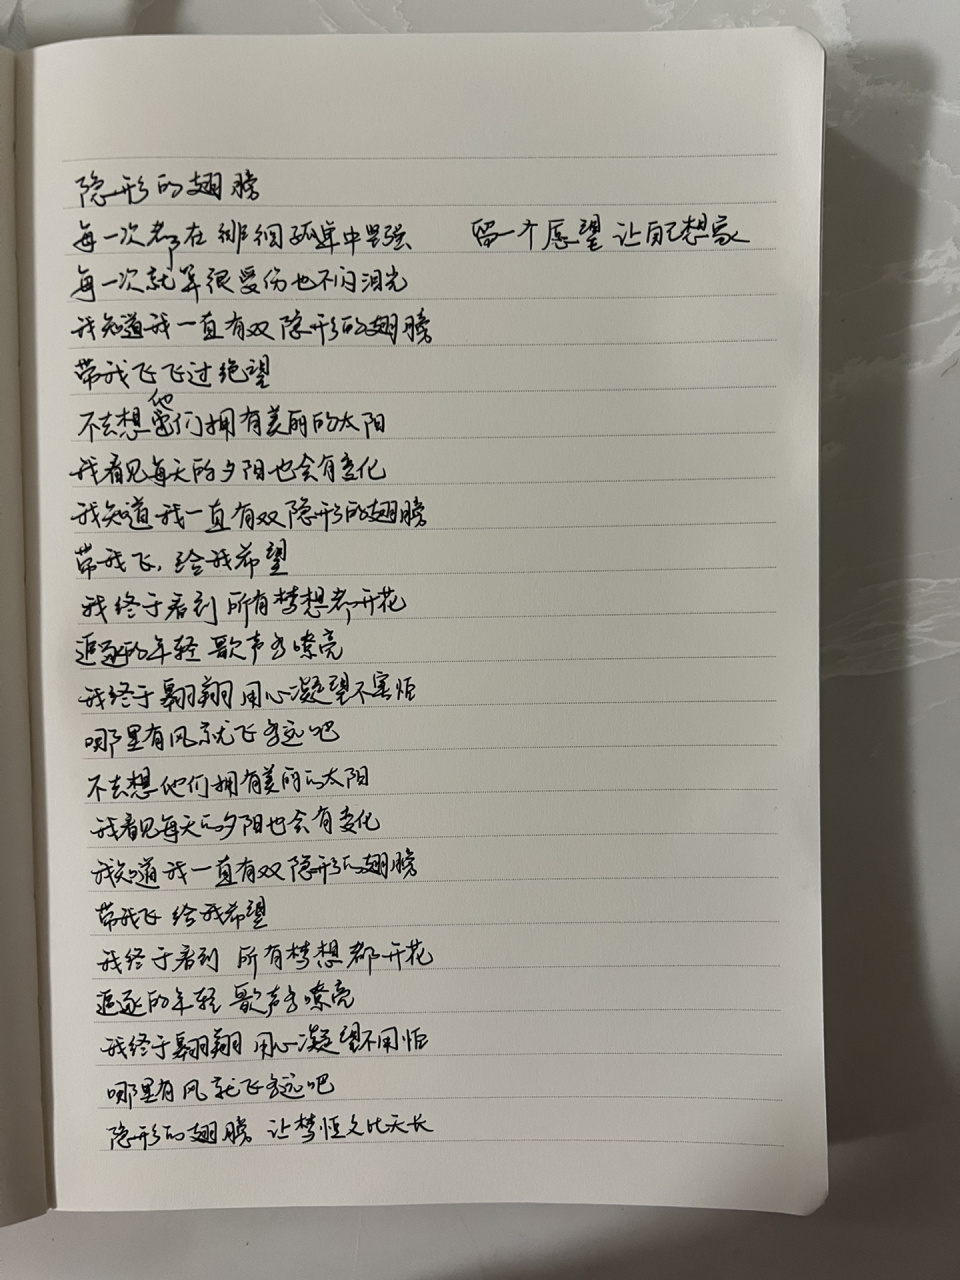 隐形的翅膀
每一次都在徘徊孤单中坚强 留一个愿望 让自己想家
每一次就算很受伤也不闪泪光
我知道我一直有双隐形的翅膀
带我飞飞过绝望
不去想他们拥有美丽的太阳
我看见每天的夕阳也会有变化
我知道我一直有双隐形的翅膀
带我飞,给我希望
我终于看到 所有梦想都开花
追逐的年轻 歌声多嘹亮
我终于翱翔 用心凝望不害怕
哪里有风就飞多远吧
不去想他们拥有美丽的太阳
我看见每天的夕阳也会有变化
我知道我一直有双隐形的翅膀
带我飞 给我希望
我终于看到 所有梦想都开花
追逐的年轻 歌声多嘹亮
我终于翱翔 用心凝望不用怕
哪里有风就飞多远吧
隐形的翅膀 让梦恒久比天长